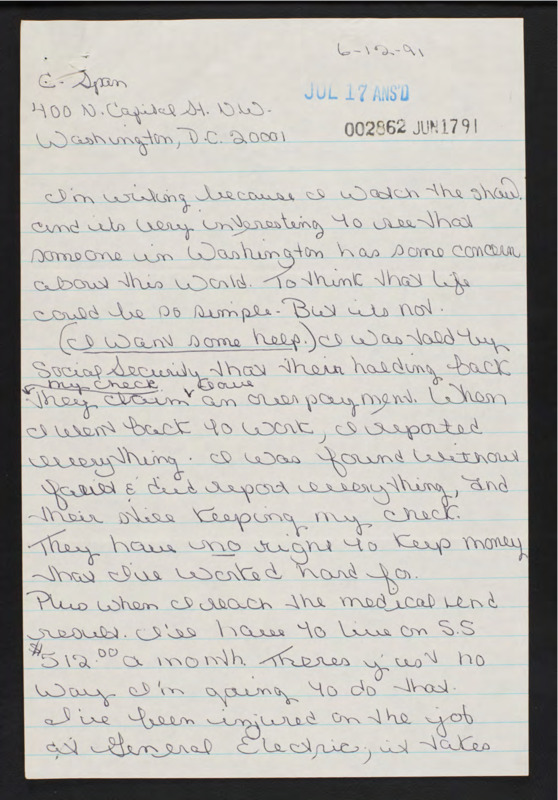 6-12-91
C-Span
JUL 17 ANS'D
400 N. Capital St. N.W.
002862 JUN 17 91
Washington, D.C. 20001
I'm writing because I watch the show,
and its very interesting to see that
someone in Washington has some concern
about this world. To think that life
could be so simple. But its not.
(I want some help.) I was told by
Social Security that their holding back
my check I owe
They claim an overpayment. When
I went back to work, I reported
everything. I was found without
fault & did report everything, and
their still keeping my check.
They have no right to keep money
that I've worked hard for.
Plus when I reach the medical end
result. I'll have to live on S.S
$512.00 a month. Theres just no
way I'm going to do that.
I've been injured on the job
at General Electric, it takes